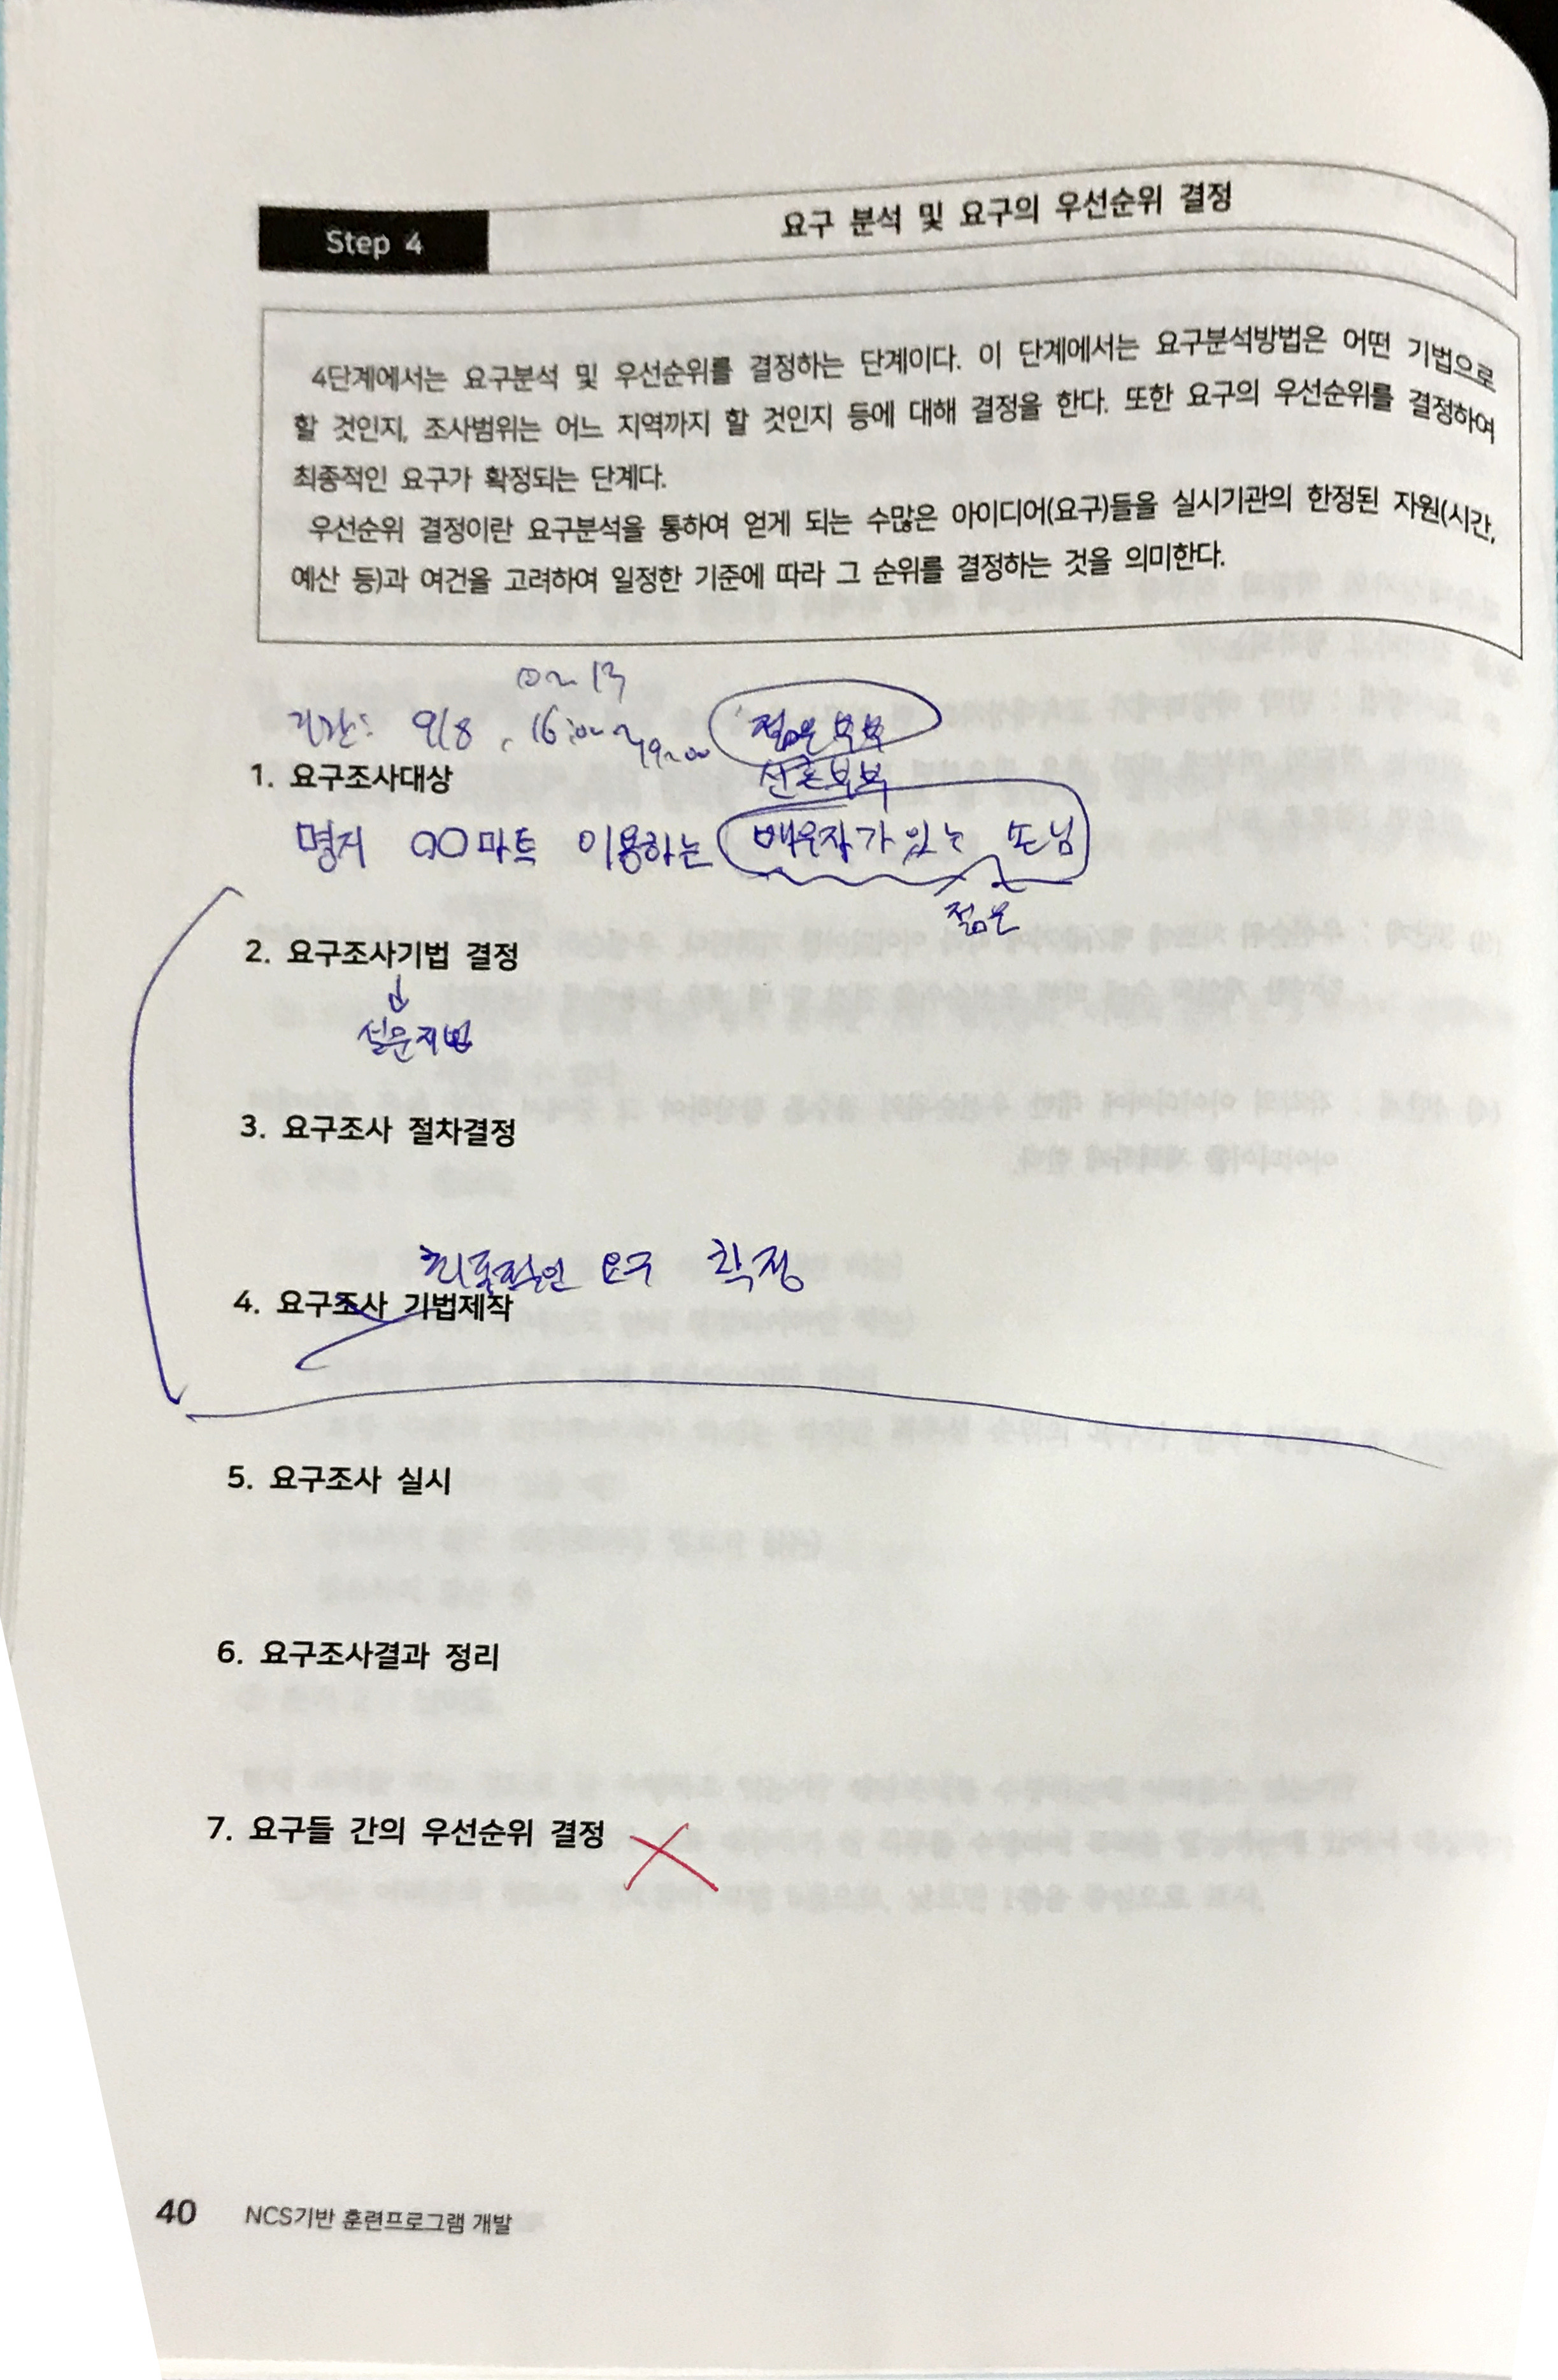 Step 4
요구 분석 및 요구의 우선순위 결정
4단계에서는 요구분석 및 우선순위를 결정하는 단계이다. 이 단계에서는 요구분석방법은 어떤 기법으로
할 것인지, 조사범위는 어느 지역까지 할 것인지 등에 대해 결정을 한다. 또한 요구의 우선순위를 결정하여
최종적인 요구가 확정되는 단계다.
우선순위 결정이란 요구분석을 통하여 얻게 되는 수많은 아이디어(요구)들을 실시기관의 한정된 자원(시간,
예산 등)과 여건을 고려하여 일정한 기준에 따라 그 순위를 결정하는 것을 의미한다.
기간: 9/8, 16:00~19:00 젊은부부
신혼부부
1. 요구조사대상
명지 OO마트 이용하는 배우자가 있는 손님
젊은
2. 요구조사기법 결정
설문지법
3. 요구조사 절차결정
최종적인 요구 확정
4. 요구조사 기법제작
5. 요구조사 실시
6. 요구조사결과 정리
7. 요구들 간의 우선순위 결정
40 NCS기반 훈련프로그램 개발